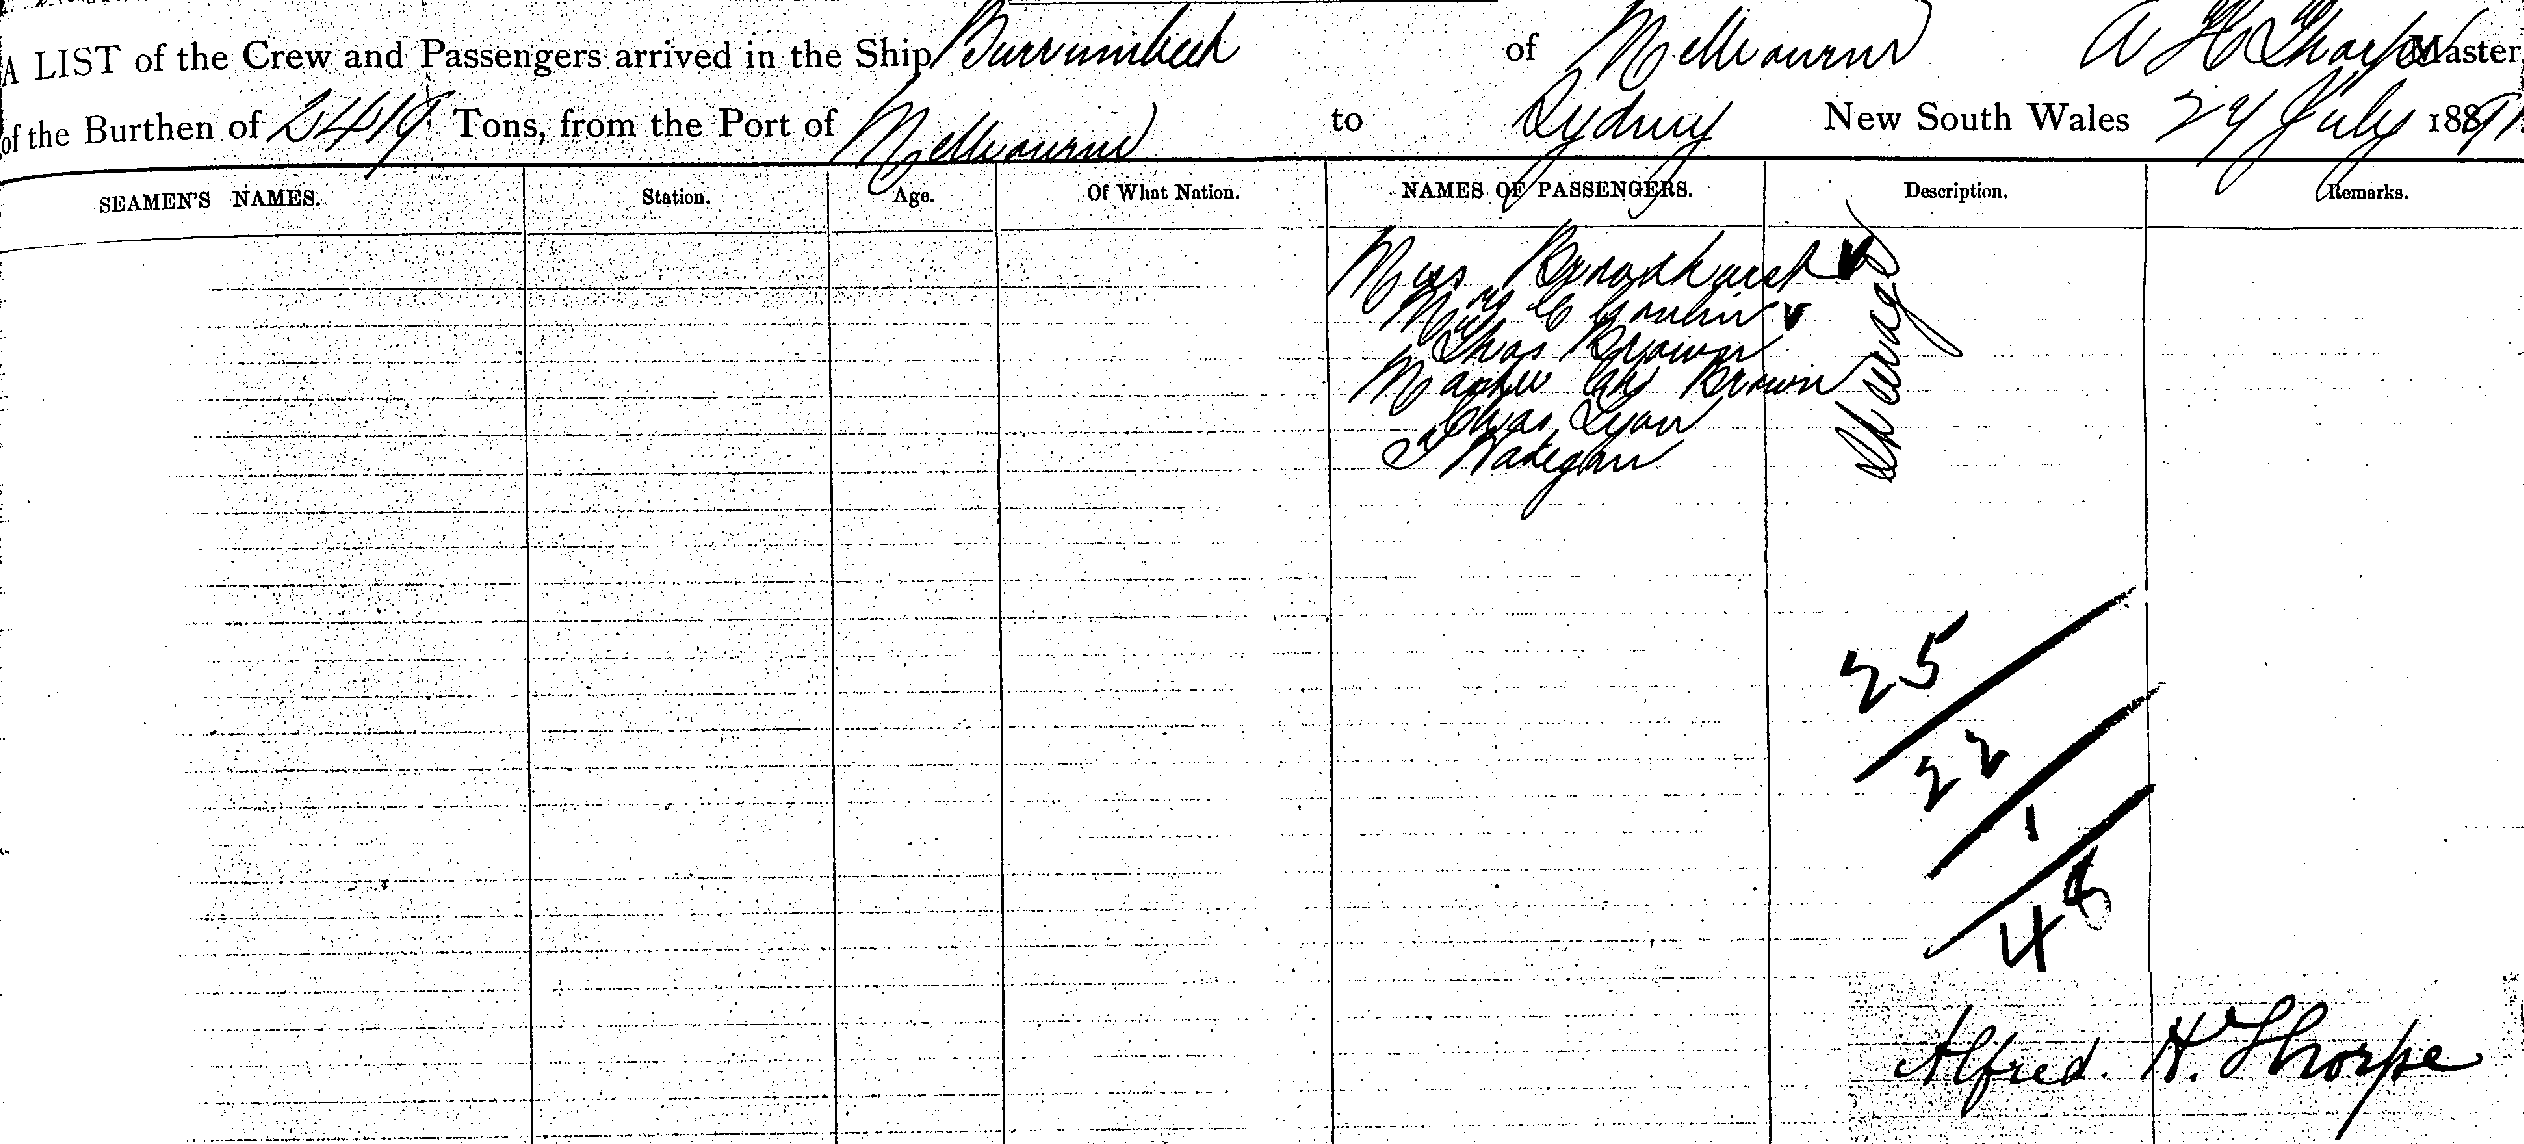 A LIST of the Crew and Passengers arrived in the Ship Burrumbeet of Melbourne A H Thorpe Master,
of the Burthen of 2419 Tons, from the Port of Melbourne to Sydney New South Wales 24 July 1891
SEAMEN'S NAMES. Station. Age. Of What Nation. NAMES OF PASSENGERS. Description. Remarks.
Miss Broadhurst
Mrs C
Thos Brown
Master Chs Brown
Chas Lyon
Steerage
25
22
1
48
Alfred. H. Thorpe